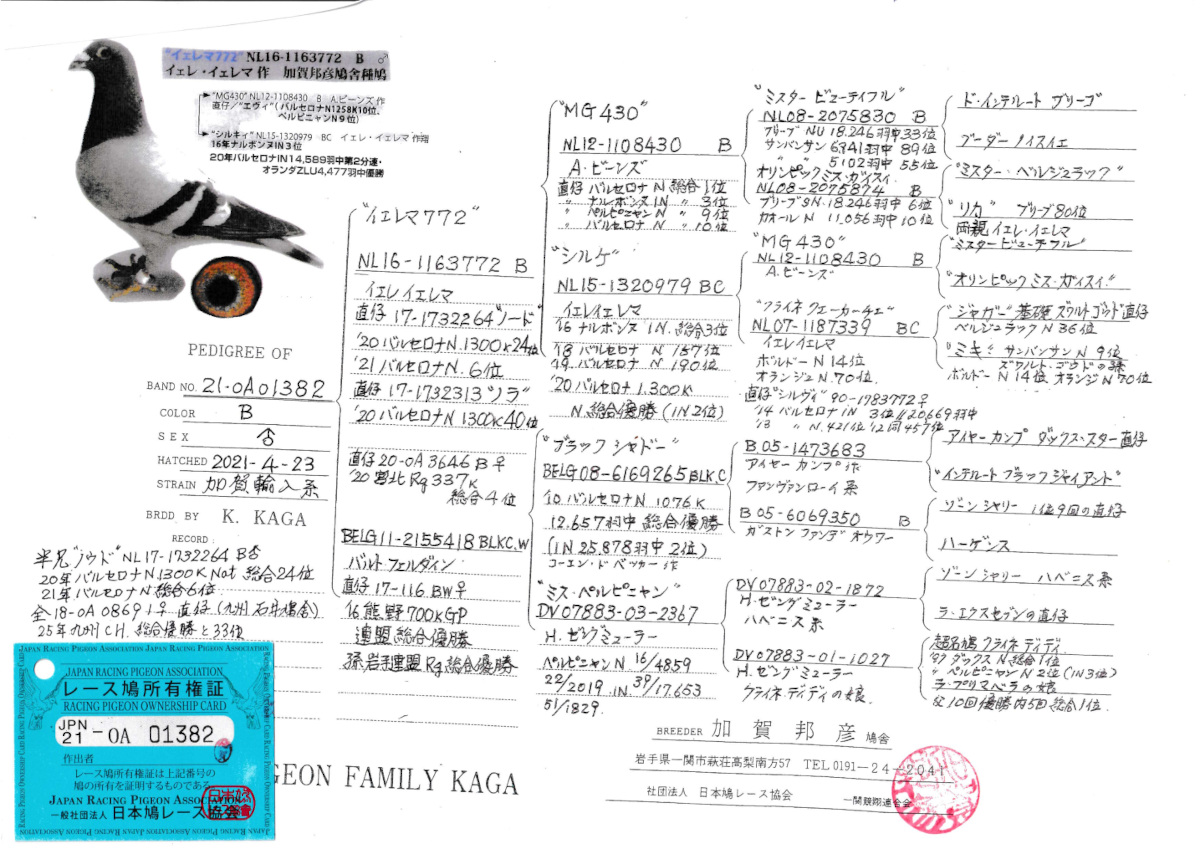 "イェレマ772" NL16-1163772 B ♂
イェレ・イェレマ作 加賀邦彦鳩舎種鳩
"MG430" NL12-1108430 B A.ビーンズ作
直仔/"エヴィ"(バルセロナN1258K10位、
ペルピニャンN9位)
"シルキィ" NL15-1320979 BC イェレ・イェレマ作翔
16年ナルボンヌIN3位
20年バルセロナIN14,589羽中第2分速・
オランダZLU4,477羽中優勝
PEDIGREE OF
BAND NO. 21-0A01382
COLOR B
SEX ♂
HATCHED 2021-4-23
STRAIN 加賀輸入系
BRDD BY K. KAGA
RECORD:
半兄"ノウド"NL17-1732264 B♂
20年バルセロナN.1300K Nat 総合24位
21年バルセロナN総合6位
全18-0A 08691♀直仔(九州 石井鳩舎)
25年九州CH.総合優勝と33位
"イエレマ772"
NL16-1163772 B
イエレイエレマ
直仔17-1732264"ノード"
'20バルセロナN.1300K24位
'21バルセロナN.6位
直仔17-1732313"ノラ"
'20バルセロナN1300K40位
直仔20-0A3646B♀
'20宮北Rg337K
総合4位
BELG11-2155418BLKC.W
バルト.フェルダイン
直仔17-116.BW♀
'16熊野700KGP
連盟総合優勝
孫岩手連盟Rg総合優勝
"MG430"
NL12-1108430 B
A.ビーンズ
直仔バルセロナN総合1位
〃ナルボンヌIN〃3位
〃ペルピニャンN〃9位
〃バルセロナN〃10位
"シルケ"
NL15-1320979 BC
イエレイエレマ
'16ナルボンヌIN.総合3位
'18バルセロナN157位
'19.バルセロナN190位
'20バルセロナ1.300K
N.総合優勝(IN2位)
"ブラックシャドー"
BELG08-6169265BLK.C
'10バルセロナN.1076K
12.657羽中総合優勝
(IN25.878羽中2位)
コーエン・ド・ベッカー作
"ミス・ペルピニャン"
DV07883-03-2367
H.ゼングミューラー
ペルピニャンN 16/4859
22/2019 .IN 39/17.653
51/1829.
"ミスタービューティフル"
NL08-2075830 B
ブリーブNU18.246羽中33位
サンバンサン6941羽中89位
〃5102羽中55位
オリンピックミス.ガイスイ.
NL08-2075874 B
ブリーブSN.18.246羽中6位
カオールN11.056羽中10位
"MG430"
NL12-1108430 B
A.ビーンズ
"フライネクェーカーチェ"
NL07-1187339 BC
イエレイエレマ
ボルドーN14位
オランジュN.70位.
直仔"シルヴィ"90-1783772♀
'14バルセロナIN3位/20669羽中
'13〃N.421位'12同457位
B05-1473683
アイヤーカンプ作
ファンヴァンローイ系
B05-6069350 B
ガストンファンデオウワー
DV07883-02-1872
H.ゼングミューラー
ハベニス系
DV07883-01-1027
H.ゼングミューラー
クライネ.ディディの娘
ド・インテルートブリーゴ
"ミスター・ベルジュラック"
"リカ" ブリーブ80位
両親イエレ・イエレマ
"ミスタービューチフル"
"オリンピックミス.ガイスイ"
"ジャガー"基礎ズワルトゴウド直仔
ベルジュラックN36位
"ミキ"サンバンサンN9位
ズワルト・ゴウドの孫
ボルドーN14位オランジN70位
アイヤーカンプダックス・スター直仔
"インテルートブラックジャイアント"
ゾーンシャリー1位9回の直仔
ハーゲンス
ゾーンシャリーハベニス系
ラ・エクスセブンの直仔
超名鳩クライネディディ
'97ダックスN総合1位
〃ペルピニャンN2位(IN3位)
ラ・プリマベラの娘
父10回優勝内5回総合1位.
JAPAN RACING PIGEON ASSOCIATION
レース鳩所有権証
RACING PIGEON OWNERSHIP CARD
JPN
21-OA 01382
作出者
レース鳩所有権証は上記番号の
鳩の所有を証明するものである
JAPAN RACING PIGEON ASSOCIATION
一般社団法人 日本鳩レース協会
GEON FAMILY KAGA
BREEDER 加賀邦彦鳩舎
岩手県一関市萩荘高梨南方57 TEL0191-24-2041
社団法人 日本鳩レース協会 一関競翔連合会